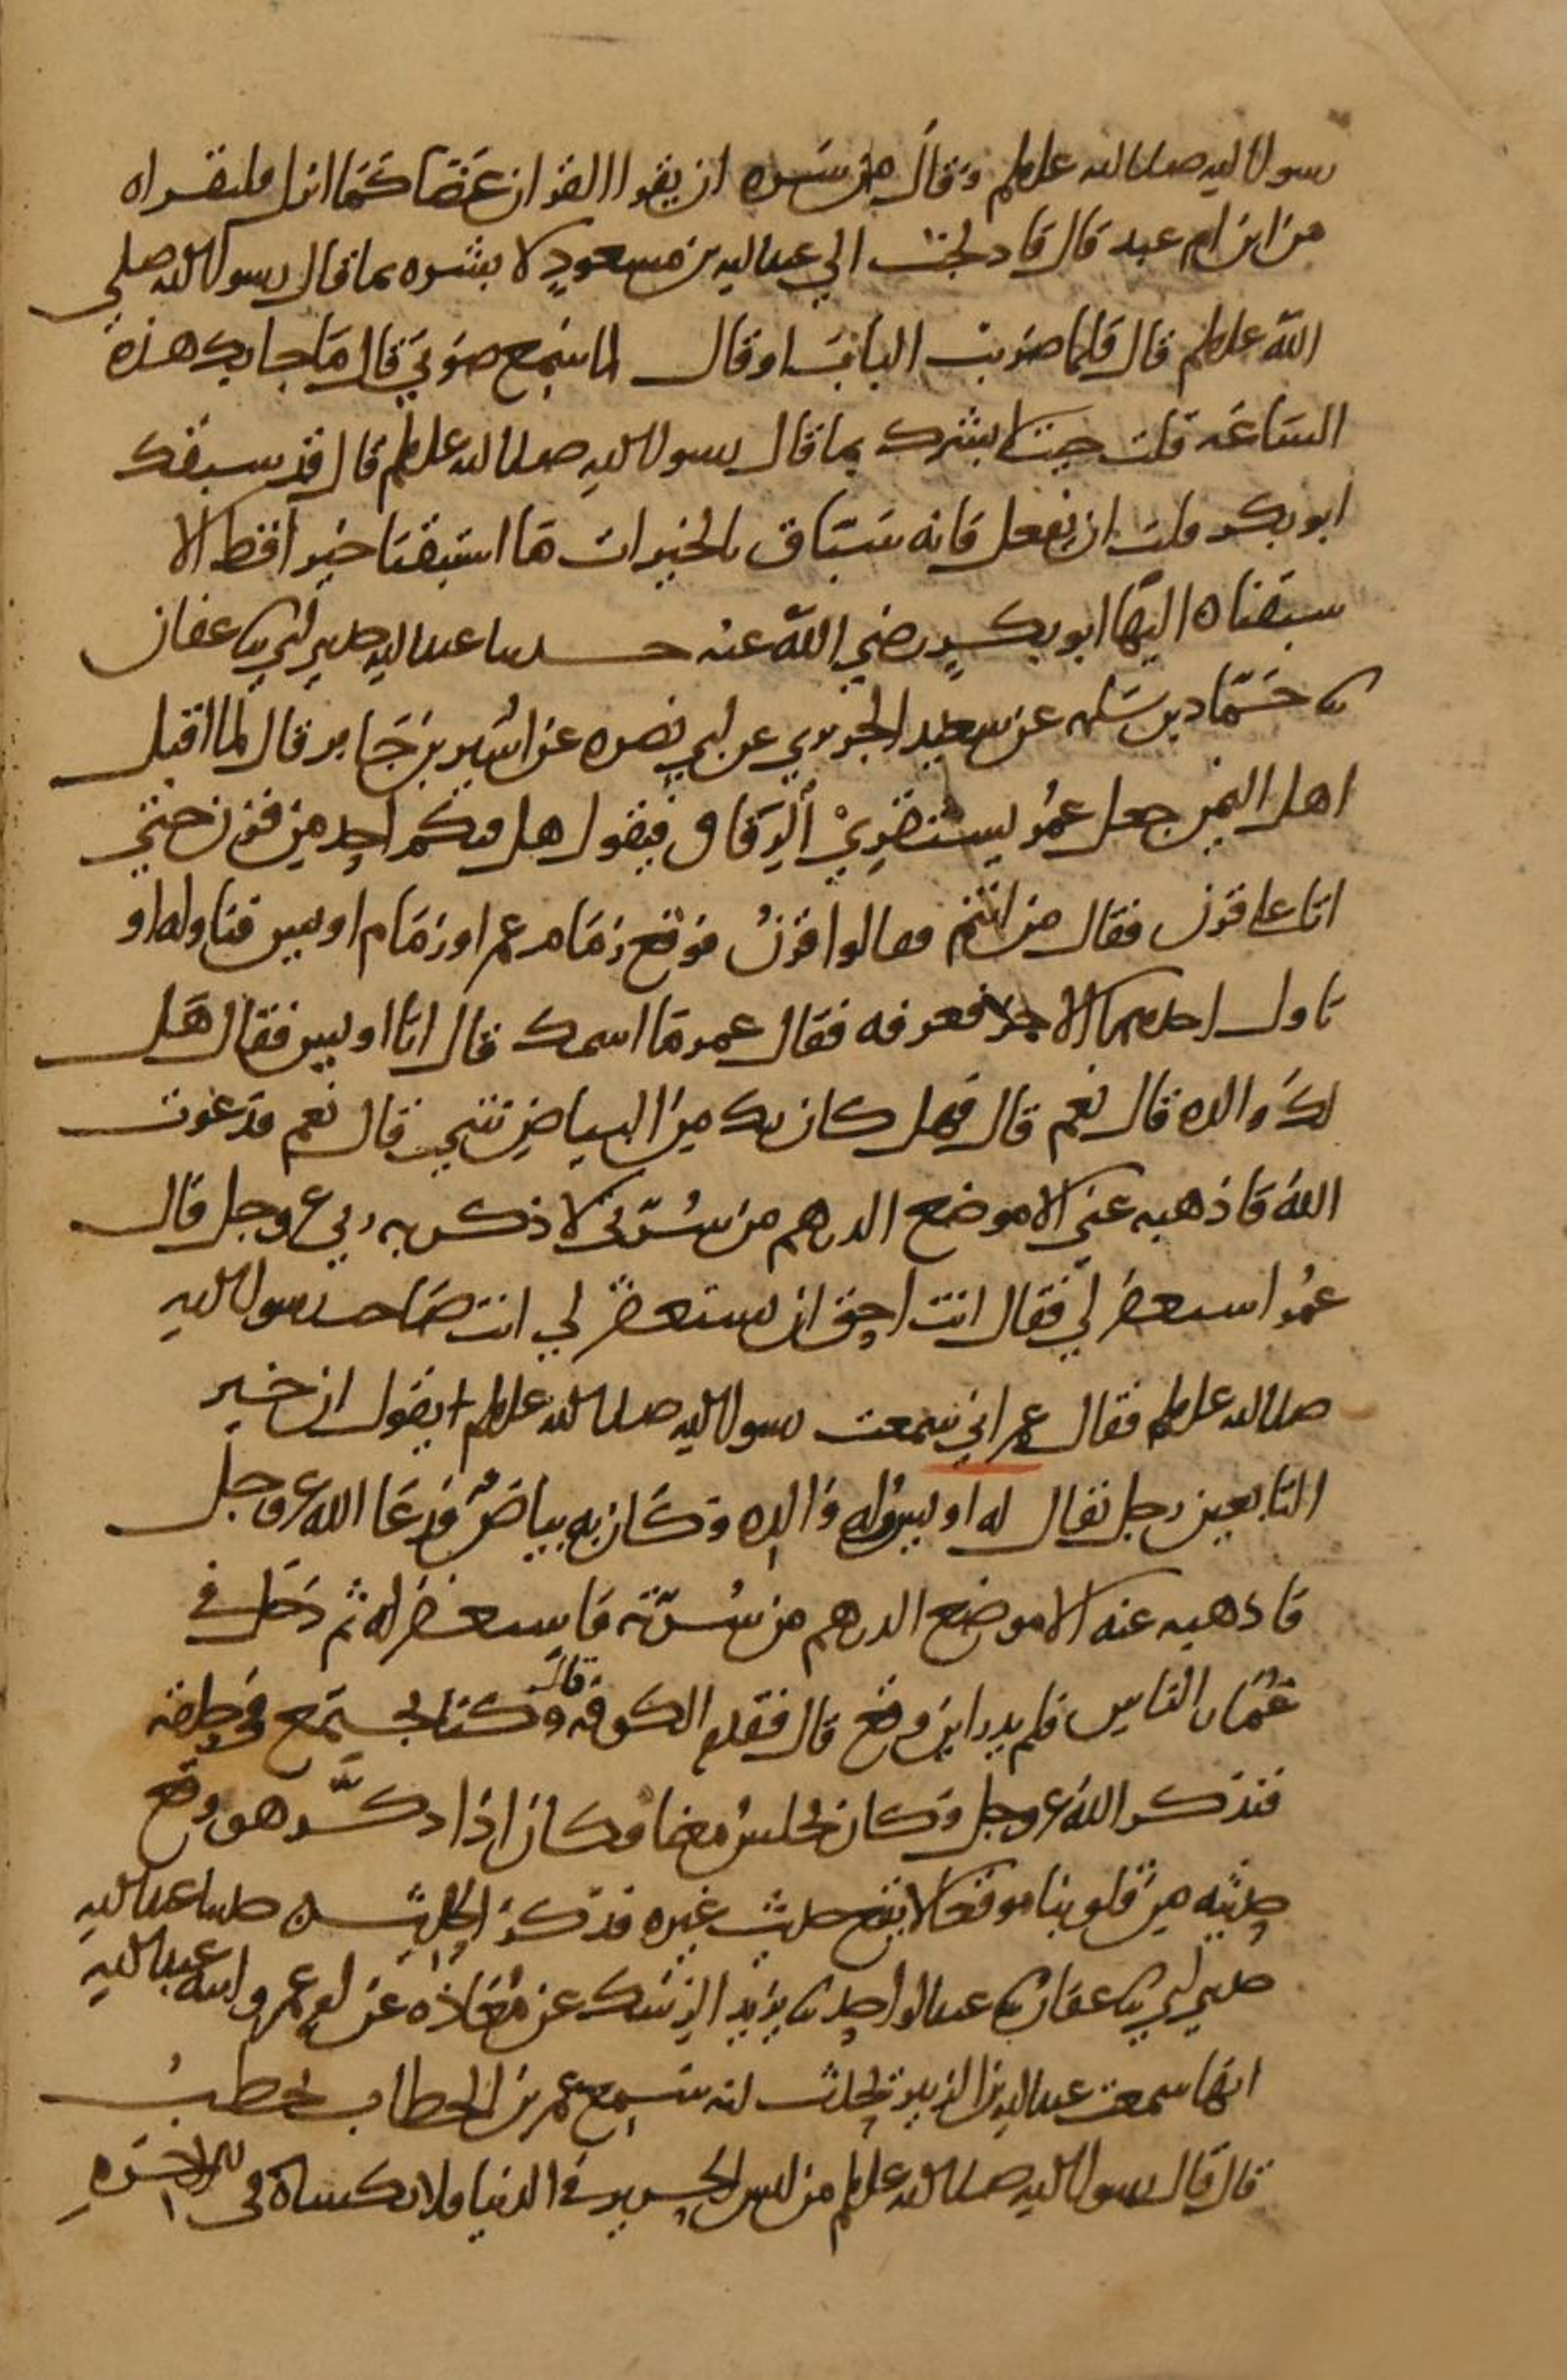 رسول الله صلى الله عليه وسلم وقال من سره ان يقرا القران غضا كما انزل فليقراه
من ابن ام عبد قال فادلجت الي عبد الله بن مسعود لابشره بما قال رسول الله صلي
الله عليه وسلم قال فلما ضربت الباب او قال لما سمع صوتي قال ما جا بك هذه
الساعة قلت جيت لابشرك بما قال رسول الله صلى الله عليه وسلم قال قد سبقك
ابو بكر قلت ان يفعل فانه سباق بالخيرات ما استبقنا خيرا قط الا
سبقناه اليها ابو بكر رضي الله عنه حدثنا عبد الله حدثني ابي ثنا عفان
ثنا حماد بن سلمه عن سعيد الجريري عن ابي نضره عن اسير بن جابر قال لما اقبل
اهل اليمن جعل عمر يستقري الرفاق فيقول هل فيكم احد من قرن حتي
اتا على قرن فقال من انتم فقالوا قرن فوقع زمام عمر او زمام اويس فناوله او
ناول احدهما الاخر فعرفه فقال عمر ما اسمك قال انا اويس فقال هل
لك والده قال نعم قال فهل كان بك من البياض شي قال نعم فدعوت
الله فاذهبه عني الا موضع الدرهم من سرتي لاذكر به ربي عز وجل قال
عمر استغفر لي فقال انت احق ان تستغفر لي انت صاحب رسول الله
صلى الله عليه وسلم فقال عمر اني سمعت رسول الله صلى الله عليه وسلم يقول ان خير
التابعين رجل يقال له اويس وله والده وكان به بياض فدعا الله عز وجل
فاذهبه عنه الا موضع الدرهم من سرته فاستغفر له ثم دخل في
غمار الناس فلم يدر اين وقع قال فقدم الكوفة قال وكنا نجتمع في حلقة
فنذكر الله عز وجل وكان يجلس معنا فكان اذا ذكر هو وقع
حديثه من قلوبنا موقعا لا يقع حديث غيره فذكر الحديث حدثنا عبد الله
حدثني ابي ثنا عفان ثنا عبد الواحد ثنا يزيد الرشك عن معاذه عن ام عمرو ابنة عبد الله
انها سمعت عبد الله بن الزبير يحدث انه سمع عمر بن الخطاب يخطب
قال قال رسول الله صلى الله عليه وسلم من لبس الحرير في الدنيا فلا يكساه في الاخره